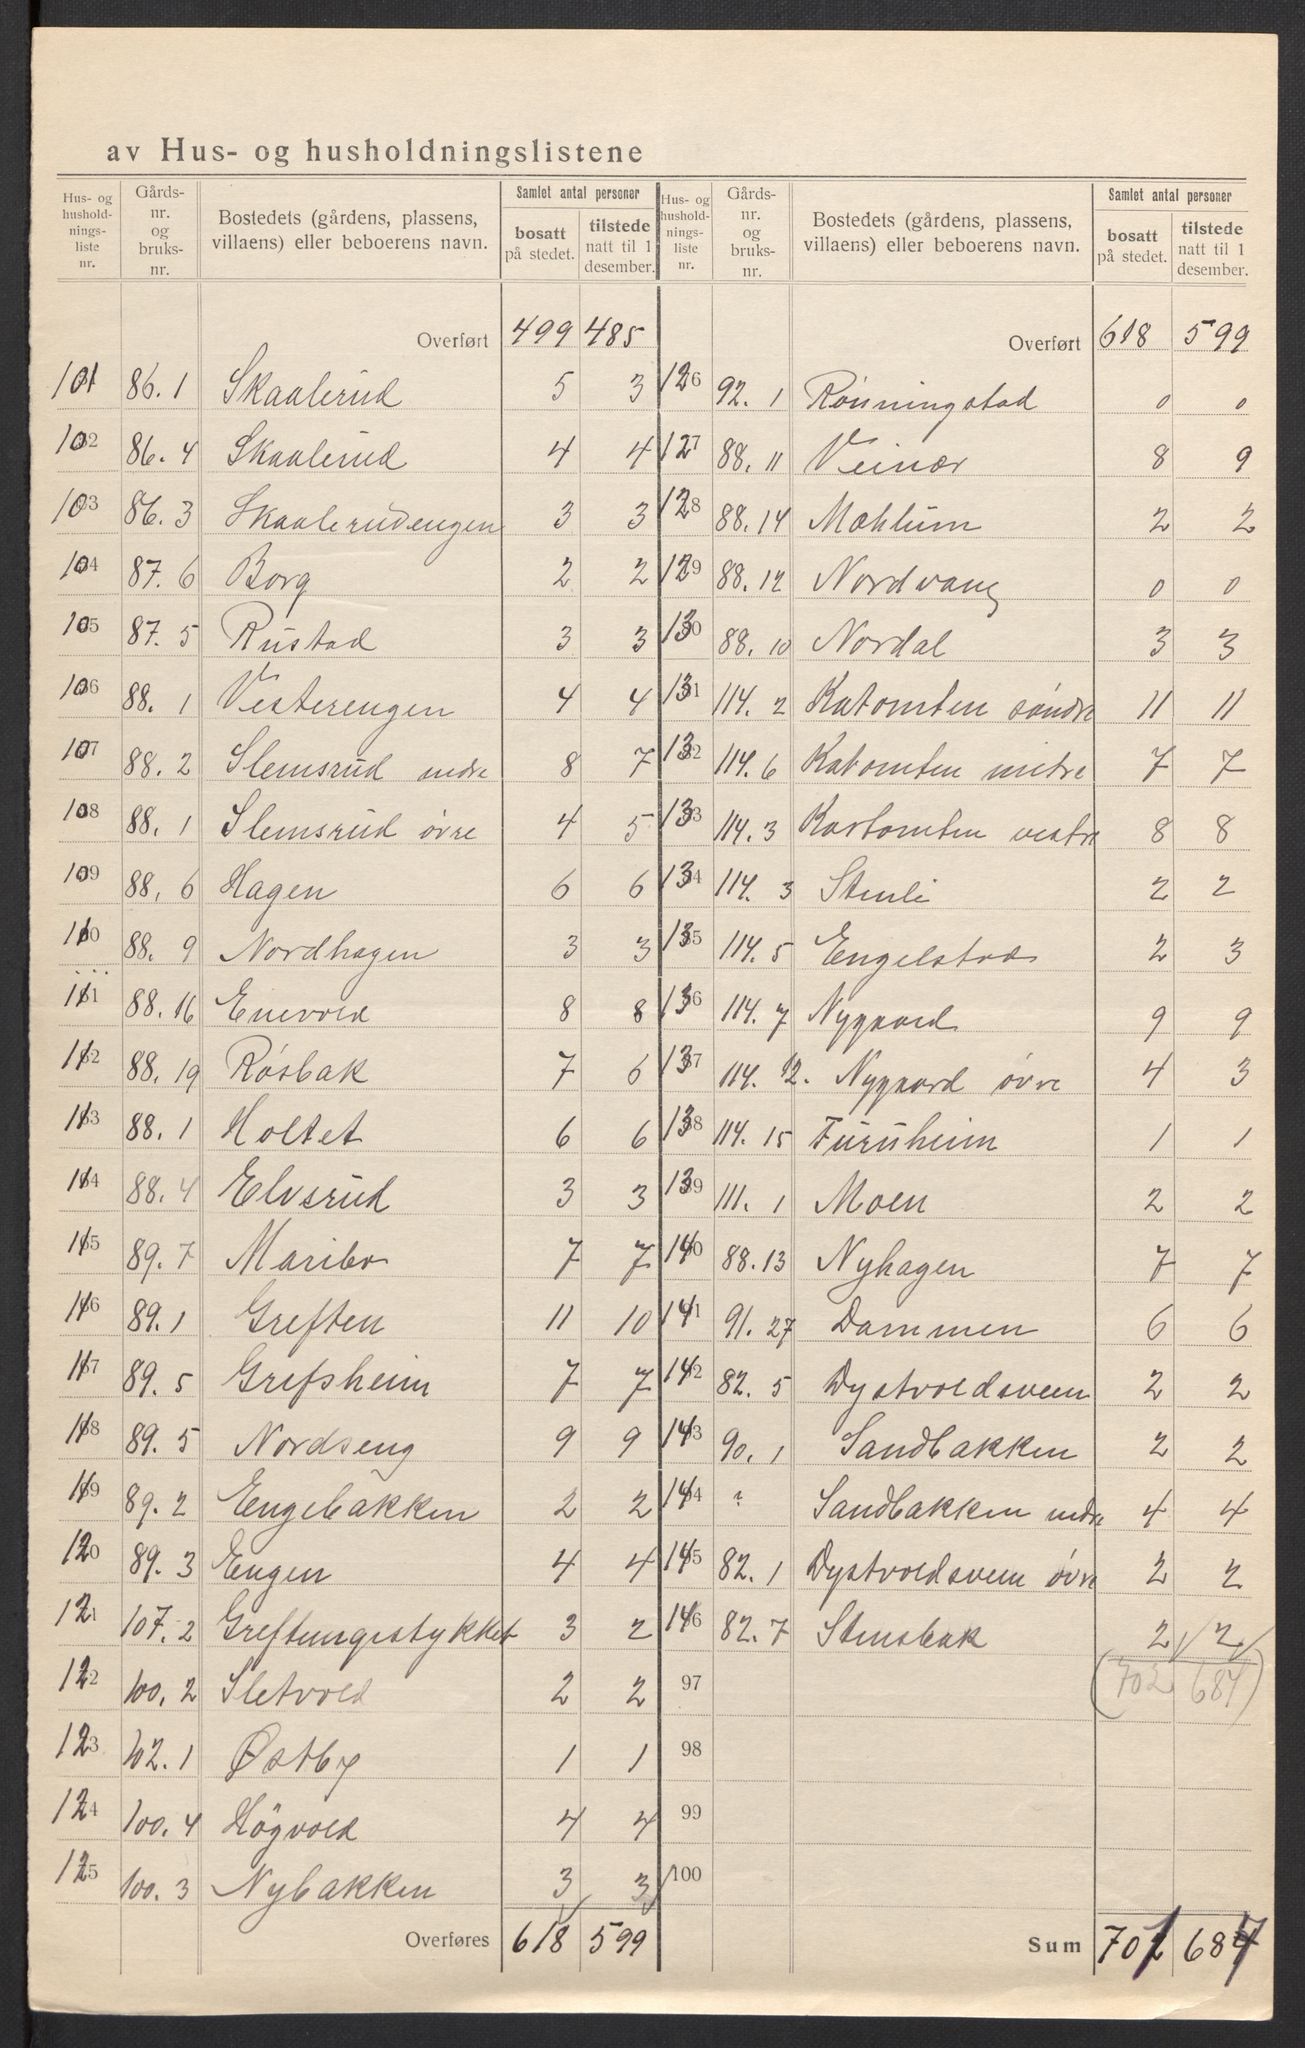 av Hus- og husholdningslistene
Hus- og husholdningsliste nr. | Gårdsnr. og bruksnr. | Bostedets (gårdens, plassens, villaens) eller beboerens navn. | Samlet antal personer | bosatt på stedet. | tilstede natt til 1 desember.
Overført 499 485
101 86.1 Skaalerud 5 3
102 86.4 Skaalerud 4 4
103 86.3 Skaalerudengen 3 3
104 87.6 Borg 2 2
105 87.5 Rustad 3 3
106 88.1 Vesterengen 4 4
107 88.2 Slemsrud nedre 8 7
108 88.1 Slemsrud øvre 4 5
109 88.6 Hagen 6 6
110 88.9 Nordhagen 3 3
111 88.16 Enevold 8 8
112 88.19 Røsbak 7 6
113 88.1 Holtet 6 6
114 88.4 Elvsrud 3 3
115 89.7 Maribo 7 7
116 89.1 Greften 11 10
117 89.5 Grefsheim 7 7
118 89.5 Nordseng 9 9
119 89.2 Engebakken 2 2
120 89.3 Engen 4 4
121 107.2 Greftungsstykket 3 2
122 100.2 Sletvold 2 2
123 Østby 1 1
124 100.4 Høgvold 4 4
125 100.3 Nybakken 3 3
Overføres 618 599
Hus- og husholdningsliste nr. | Gårdsnr. og bruksnr. | Bostedets (gårdens, plassens, villaens) eller beboerens navn. | Samlet antal personer | bosatt på stedet. | tilstede natt til 1 desember.
Overført 618 599
126 92.1 Rønningstad 0 0
127 88.11 Veinør 8 9
128 88.14 Mæhlum 2 2
129 88.12 Nordvang 0 0
130 88.10 Nordal 3 3
131 114.2 Katomten søndre 11 11
132 114.6 Katomten mitre 7 7
133 114.3 Kastomten vestre 8 8
134 114.3 Stenli 2 2
135 114.5 Engelstad 2 3
136 114.7 Nygaard 9 9
137 114.12. Nygaard øvre 4 3
138 114.15 Furuheim 1 1
139 111.1 Moen 2 2
140 88.13 Nyhagen 7 7
141 91.27 Dammen 6 6
142 82.5 Dystvoldsveen 2 2
143 90.1 Sandbakken 2 2
144 " Sandbakken nedre 4 4
145 82.1 Dystvoldsveen øvre 2 2
146 82.7 Stensbak 2 2
97 (702 684)
98
99
100
Sum 701 687